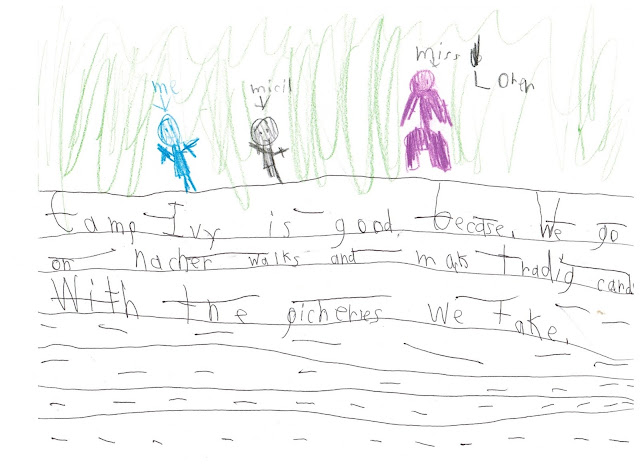 me
micil
miss
L Oren
Camp Ivy is good. becase. We go
on nacher walks and mak tradig card
With the picheries We take.